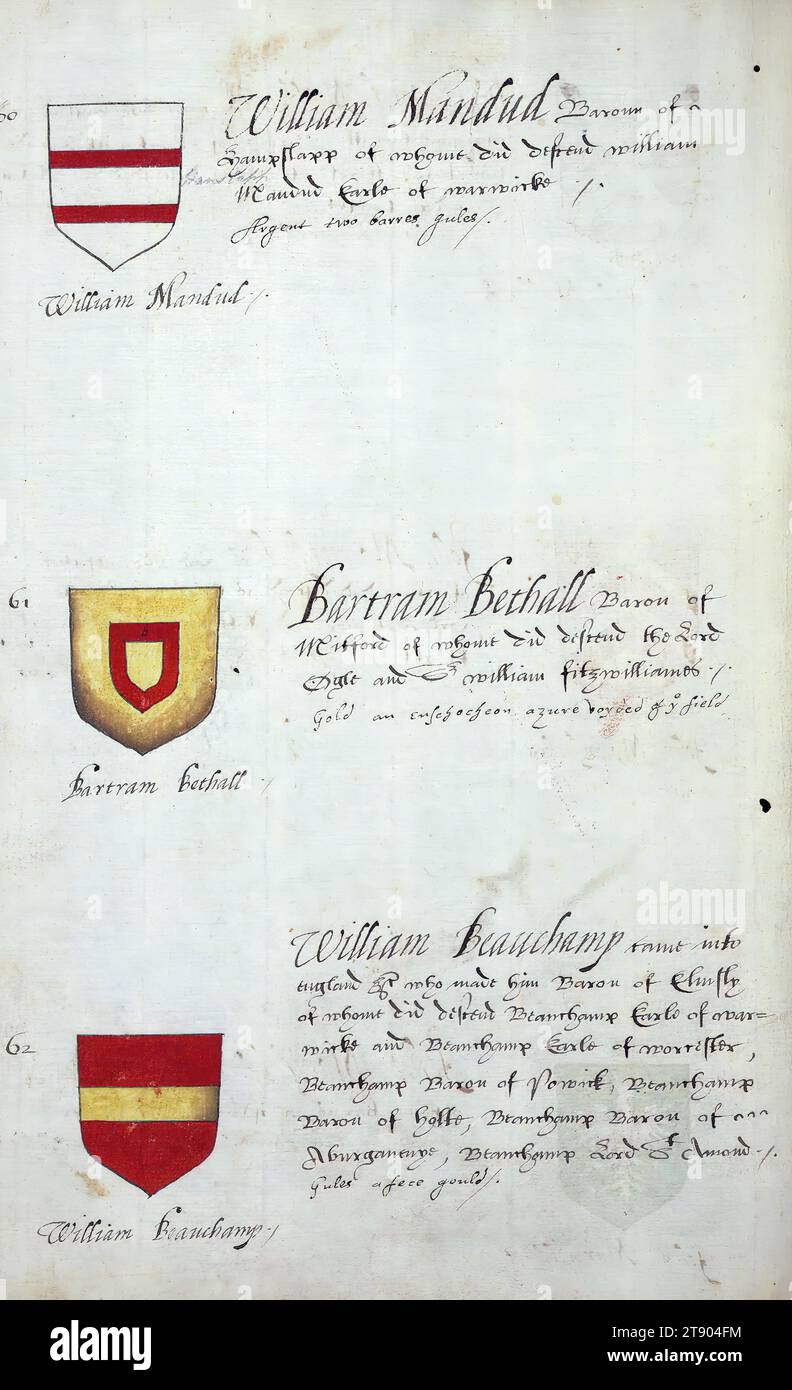 60
William Mandud Baroun of
Hampslapp of whome did descend william
Mandud Earle of warwicke
Argent two barres gules
William Mandud
61
Bartram Bethall Baron of
Mitford of whome did descend the Lord
Ogle and Sr william fitzwilliames
Gold an enschocheon azure voyded of ye field
Bartram Bethall
62
William Beauchamp came into
England &c who made him Baron of Elmsly
of whome did descend Beauchamp Earle of war=
wicke and Beauchamp Earle of worcester,
Beauchamp Baron of Powick, Beauchamp
Baron of Holte, Beauchamp Baron of
Aburganenye, Beauchamp Lord St Amond
Gules a fece gould
William Beauchamp
alamy
alamy
alamy
alamy
Image ID: 2T904FM
www.alamy.com